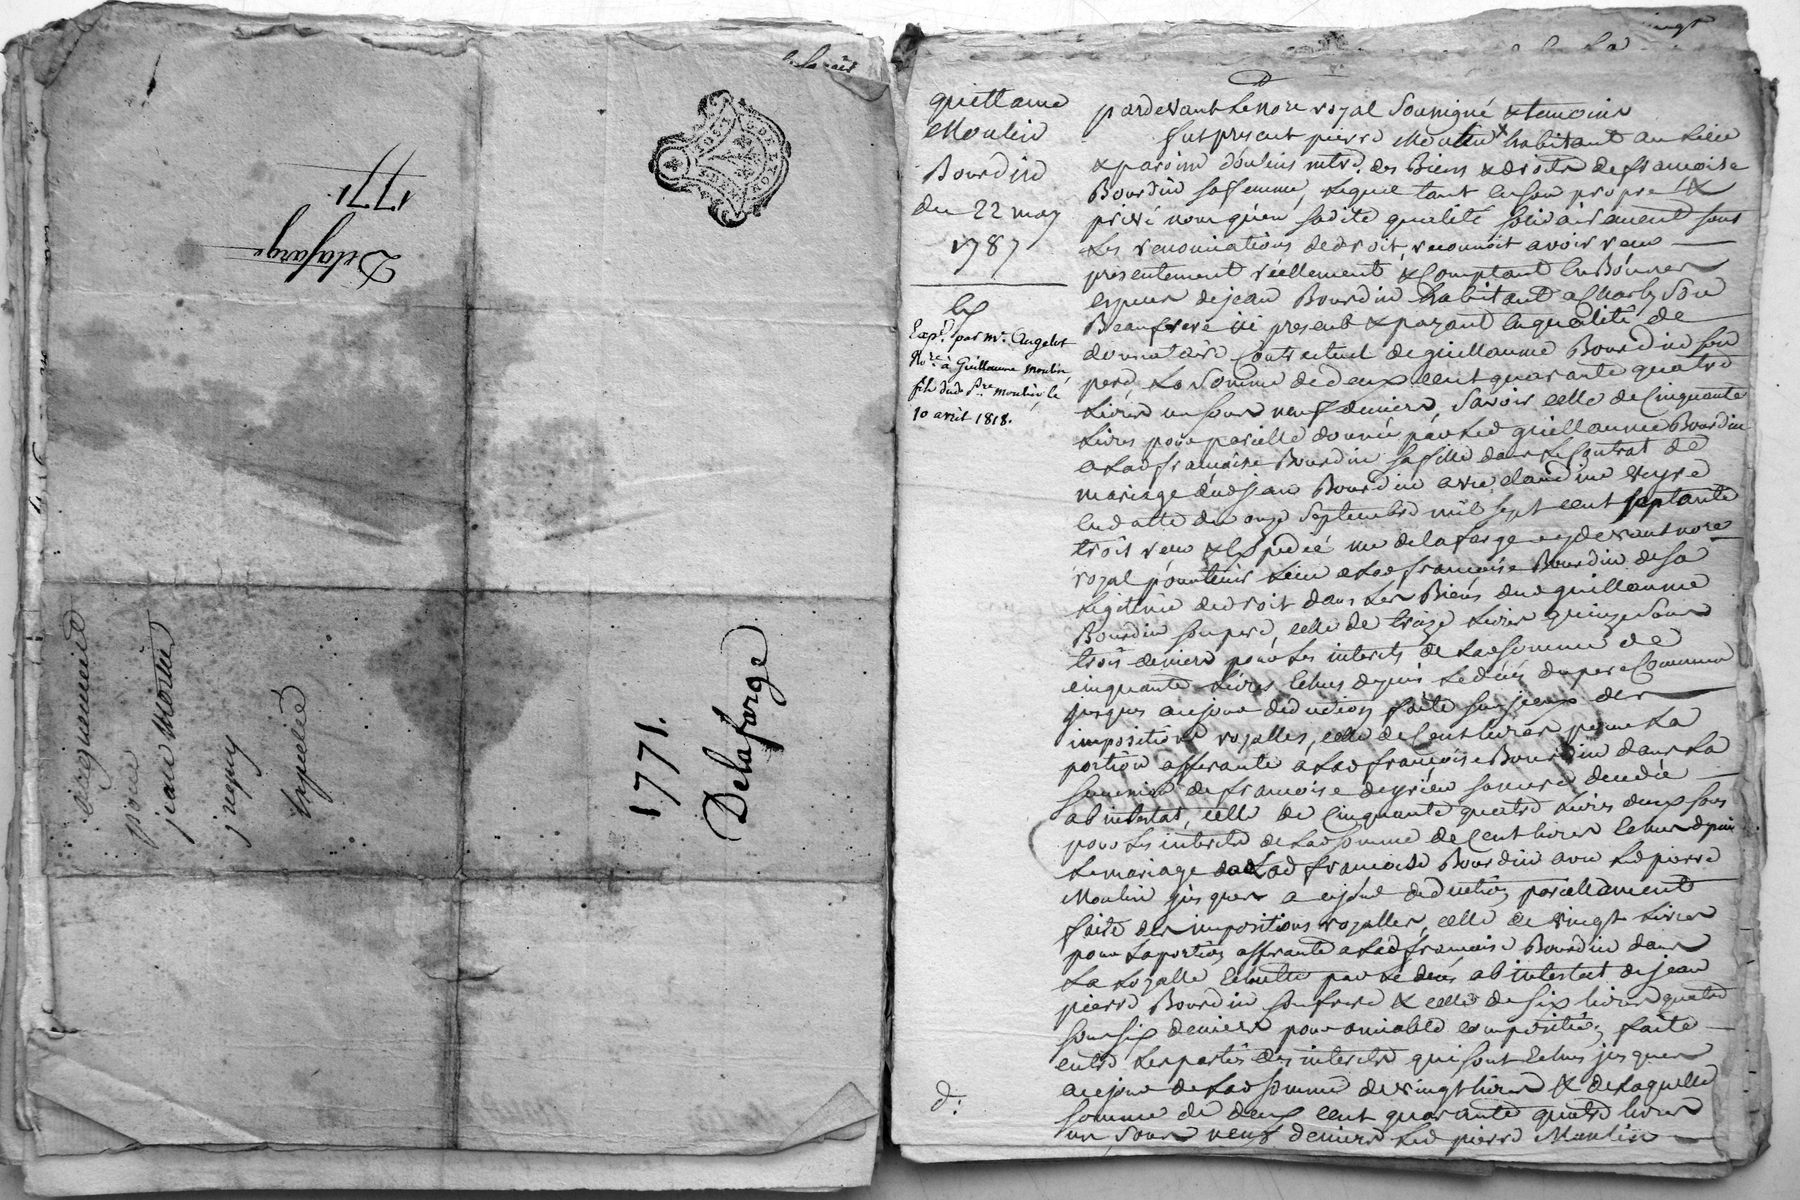 1771
Delafarge
pour
jean
expedié
1771.
Delafarge
quittance
Moulin
Bourdin
du 22 may
1787
Exp. par Mr. Augelot
nore. à Guillaume Moulin
fils dud. Pre. moulin le
10 avril 1818.
pardevant le nore royal soussigné & temoins
fut present pierre Moulin habitant au lieu
& paroisse doulins mtre. des Biens & droits de francoise
Bourdin sa femme, lequel tant en son propre &
privé nom qu'en sadite qualité solidairement sous
les renonciations de droit, reconnoit avoir reçu
presentement réellement & Comptant en Bonnes
especes de jean Bourdin habitant a Charly son
Beaufrere ici present & payant en qualité de
donnataire Contractuel de guillaume Bourdin son
pere, la somme de deux cent quarante quatre
Livres un sous neuf deniers, Savoir celle de Cinquante
Livres pour pareille donnée par led guillaume Bourdin
a lad francoise Bourdin sa fille dans le Contrat de
mariage dud jean Bourdin avec claudine
en datte du onze Septembre mil sept cent septante
trois reçu & Expedié me delafarge cydevant nore
royal pour tenir lieu a lad francoise Bourdin de sa
Legitime de droit dans les Biens dud guillaume
Bourdin son pere, celle de treize Livres quinze sous
trois deniers pour les interets de lad somme de
cinquante Livres echus depuis le décés du pere Commun
jusques aujour deduction faite sur iceux des
impositions royalles, celle de Cent livres pour la
portion afferante a lad françoise Bourdin dans la
de francoise sa mere decedée
ab intestat, celle de Cinquante quatre Livres deux sous
pour les interets de lad somme de Cent livres echus depuis
le mariage de lad francoise Bourdin avec led pierre
Moulin jusques a cejour deduction pareillement
faite des impositions royalles, celle de vingt Livres
pour la portion afferante a lad francoise Bourdin dans
la echutte par le décés ab intestat de jean
pierre Bourdin son frere & celle de six livres quatre
sous six deniers pour amiable composition faite
entre les parties des interets qui sont echus jusques
acejour de lad somme de vingt livres & de laquelle
somme de deux cent quarante quatre livres
un sous neuf deniers led pierre Moulin
d: